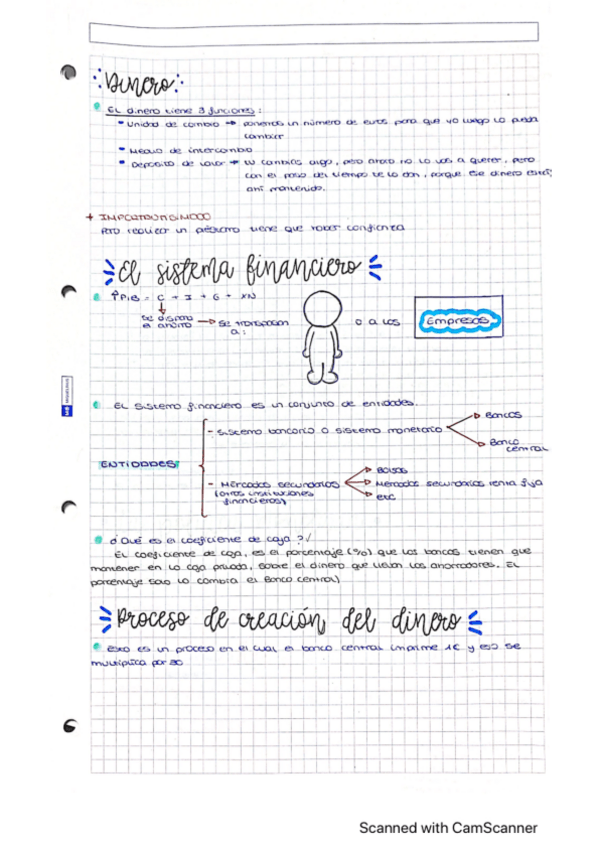 Dinero
El dinero tiene 3 funciones:
- Unidad de cambio → ponemos un número de euros para que yo luego lo pueda
cambiar
- Medio de intercambio
- Deposito de valor → tu cambias algo, pero ahora no lo vas a querer, pero
con el paso del tiempo te lo dan, porque ese dinero está
ahí mantenido.
+ IMPORTANTISIMOOO
Para realizar un préstamo tiene que haber confianza
El sistema financiero
↑PIB = C + I + G + XN
se dispara
el ahorro → se transpasan
a: o a las Empresas
El sistema financiero es un conjunto de entidades.
ENTIDADES
- Sistema bancario o sistema monetario
Bancos
Banco
central
- Mercados secundarios
(otras instituciones
financieras)
Bolsas
Mercados secundarios renta fija
etc
¿Qué es el coeficiente de caja?
El coeficiente de caja, es el porcentaje (%) que los bancos tienen que
mantener en la caja privada, sobre el dinero que llevan los ahorradores. El
porcentaje solo lo cambia el Banco Central)
Proceso de creación del dinero
Esto es un proceso en el cual el banco central imprime 1€ y eso se
multiplica por 20
Scanned with CamScanner